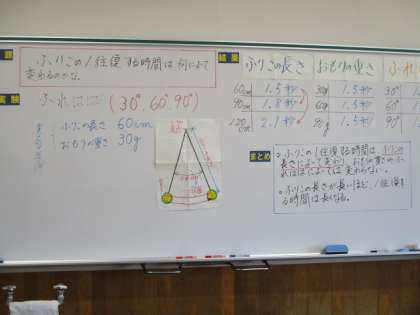 ふりこの1往復する時間は何によって
変わるのかな。
実験
ふれはば(30°.60°.90°)
ふりこの長さ 60cm
おもりの重さ 30g
結果
ふりこの長さ おもりの重さ ふれ
60cm 1.5秒 30g 1.5秒 30°
90cm 1.8秒 1.5秒 60°
120cm 2.1秒 1.5秒 90°
まとめ
・ふりこの1往復する時間は、ふりこの
長さによって変わり、おもりの重さやふ
れはばによっては変わらない。
・ふりこの長さが長いほど、1往復す
る時間は長くなる。